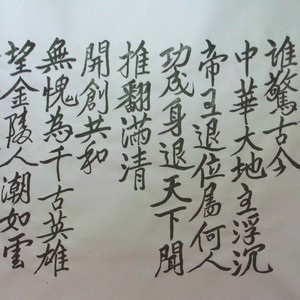 誰驚古今
中華大地主浮沉
帝王退位屬何人
功成身退天下聞
推翻滿清
開創共和
無愧為千古英雄
望金陵人潮如雲